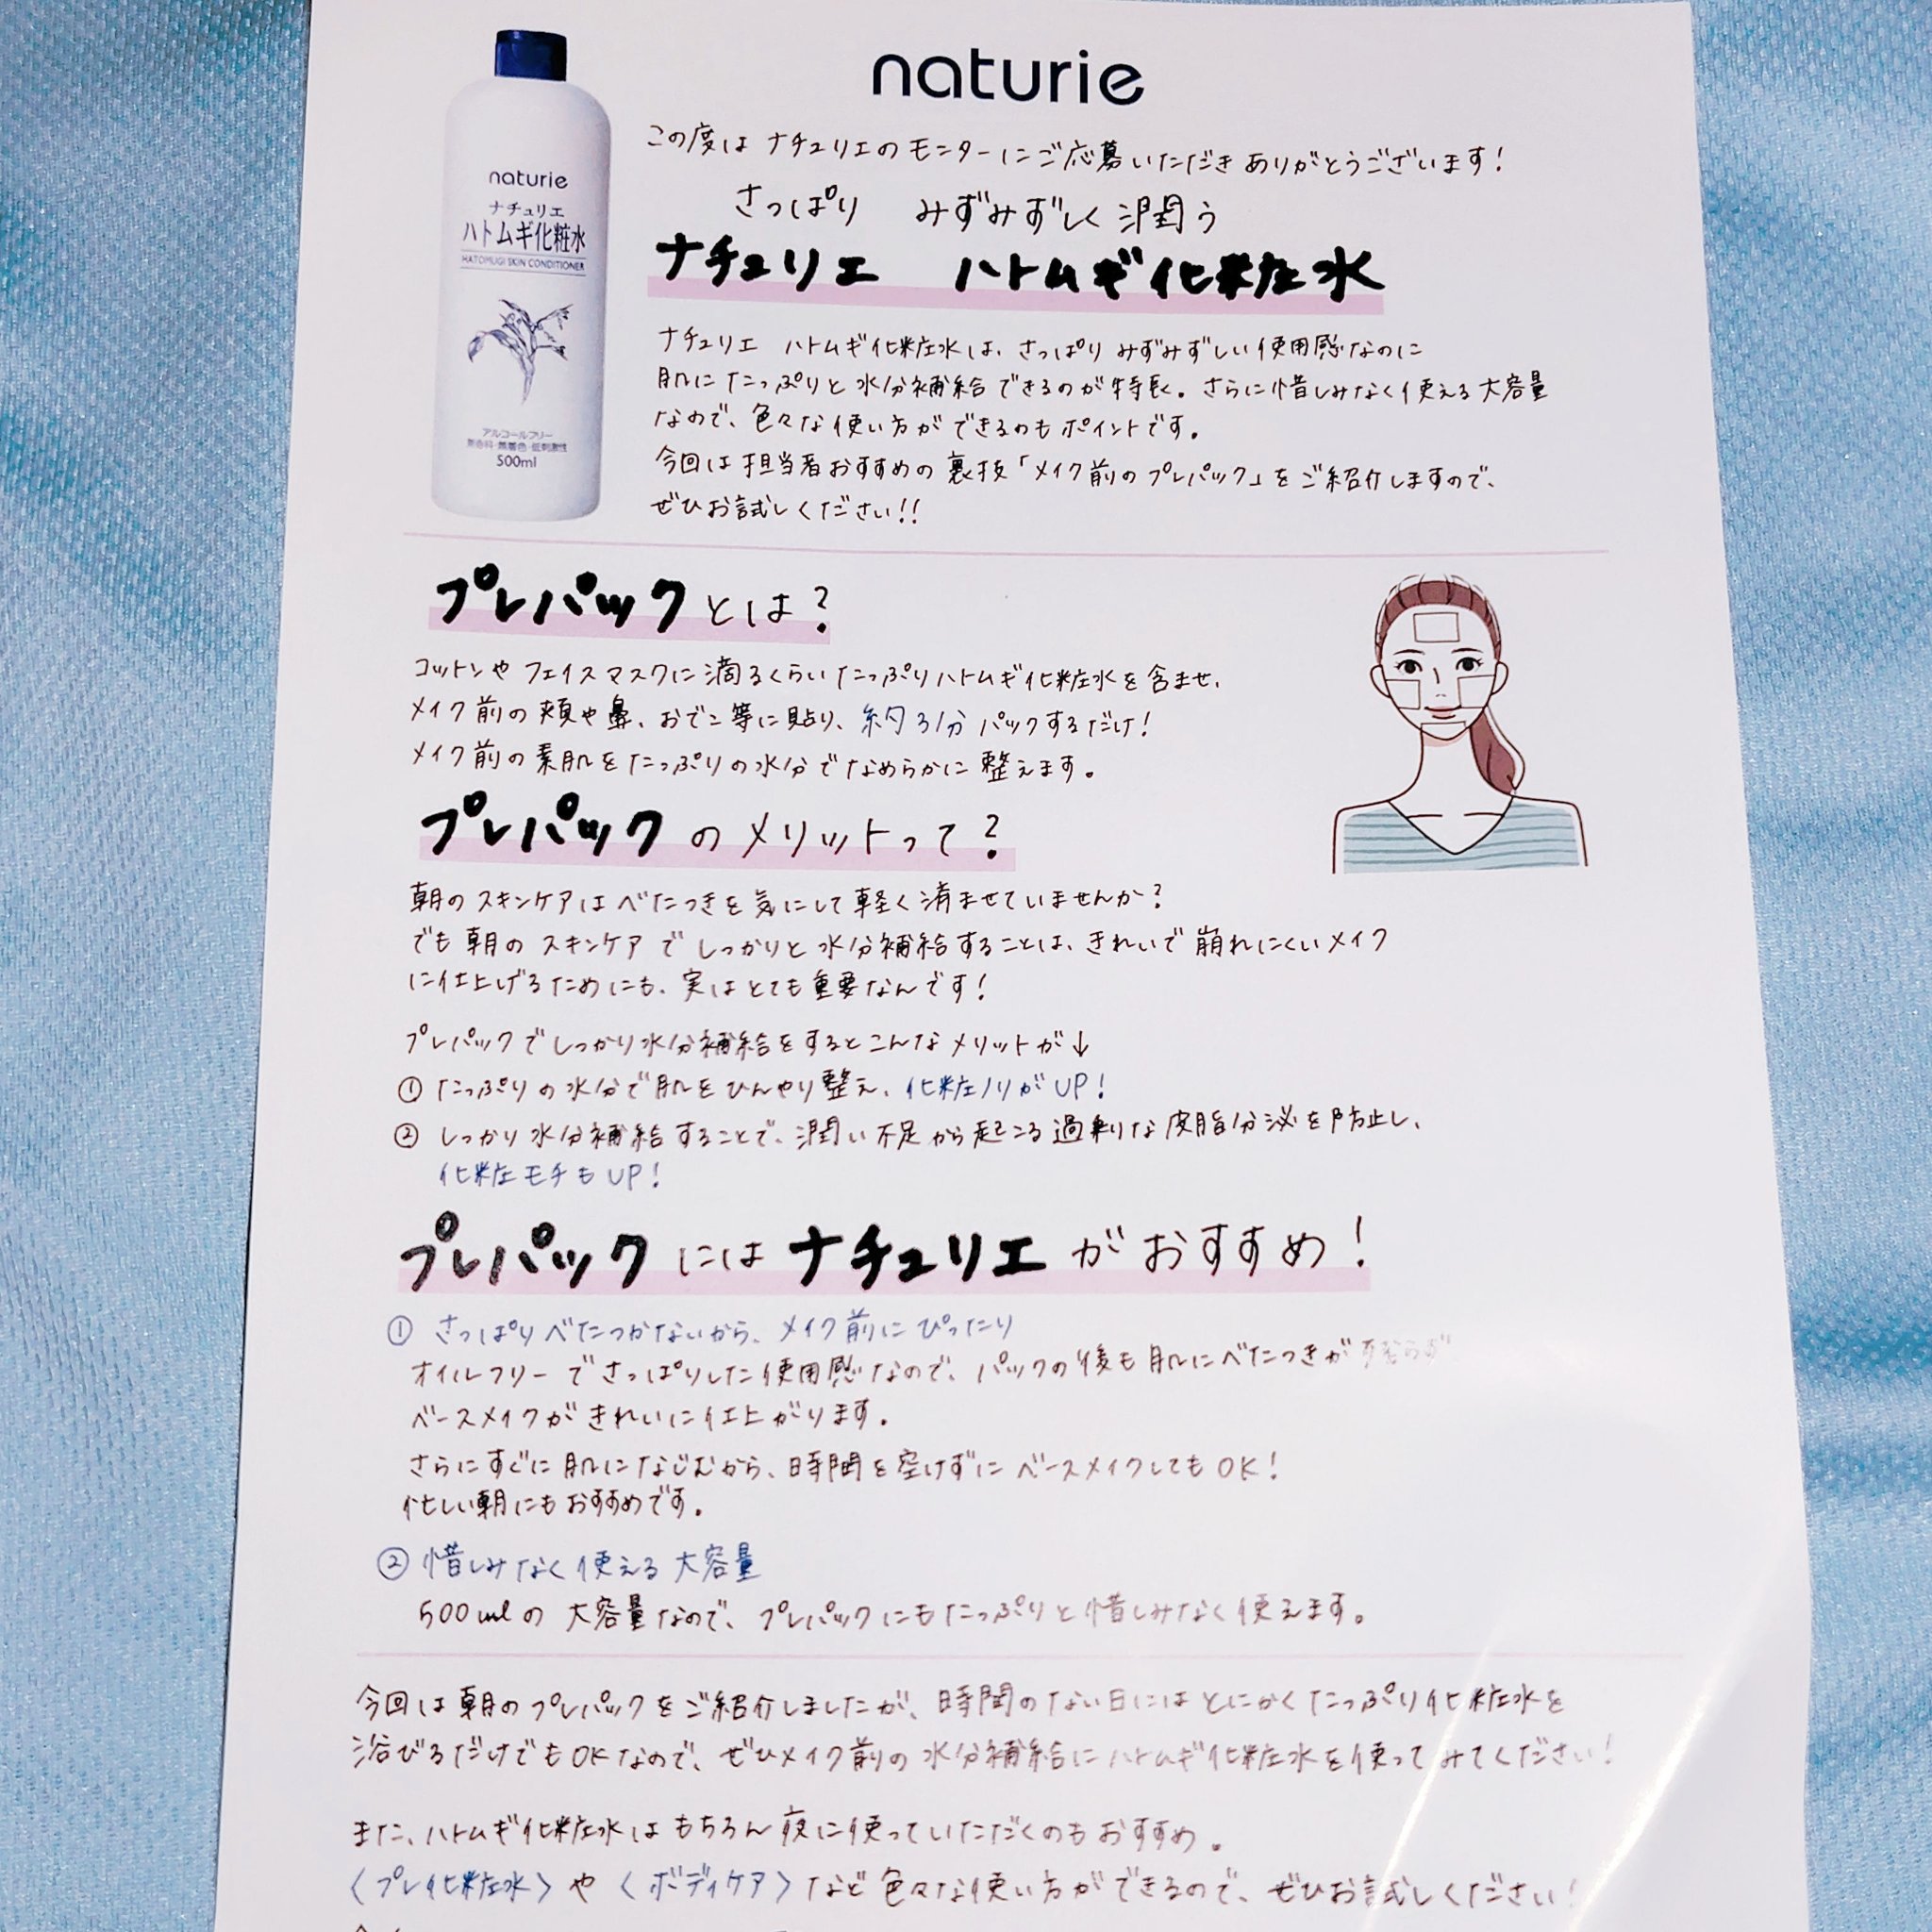 naturie
この度は ナチュリエのモニターにご応募いただき ありがとうございます!
さっぱり みずみずしく潤う
ナチュリエ ハトムギ化粧水
naturie
ナチュリエ
ハトムギ化粧水
HATOMUGI SKIN CONDITIONER
アルコールフリー
無香料・無着色・低刺激性
500ml
ナチュリエ ハトムギ化粧水は、さっぱり みずみずしい使用感なのに
肌にたっぷりと水分補給できるのが特長。さらに惜しみなく使える大容量
なので、色々な使い方ができるのもポイントです。
今回は担当者おすすめの裏技「メイク前のプレパック」をご紹介しますので、
ぜひお試しください!!
プレパックとは?
コットンやフェイスマスクに滴るくらいたっぷりハトムギ化粧水を含ませ、
メイク前の頬や鼻、おでこ等に貼り、約3分パックするだけ!
メイク前の素肌をたっぷりの水分でなめらかに整えます。
プレパックのメリットって?
朝のスキンケアはべたつきを気にして軽く済ませていませんか?
でも朝のスキンケアでしっかりと水分補給することは、きれいで崩れにくいメイク
に仕上げるためにも、実はとても重要なんです!
プレパックでしっかり水分補給をするとこんなメリットが↓
① たっぷりの水分で肌をひんやり整え、化粧ノリがUP!
② しっかり水分補給することで、潤い不足から起こる過剰な皮脂分泌を防止し、
化粧モチもUP!
プレパックにはナチュリエがおすすめ!
① さっぱりべたつかないから、メイク前にぴったり
オイルフリーでさっぱりした使用感なので、パックの後も肌にべたつきが残らず
ベースメイクがきれいに仕上がります。
さらにすぐに肌になじむから、時間を空けずにベースメイクしてもOK!
忙しい朝にもおすすめです。
② 惜しみなく使える大容量
500mlの大容量なので、プレパックにもたっぷりと惜しみなく使えます。
今回は朝のプレパックをご紹介しましたが、時間のない日にはとにかくたっぷり化粧水を
浴びるだけでもOKなので、ぜひメイク前の水分補給にハトムギ化粧水を使ってみてください!
また、ハトムギ化粧水はもちろん夜に使っていただくのもおすすめ。
〈プレ化粧水〉や〈ボディケア〉など色々な使い方ができるので、ぜひお試しください!